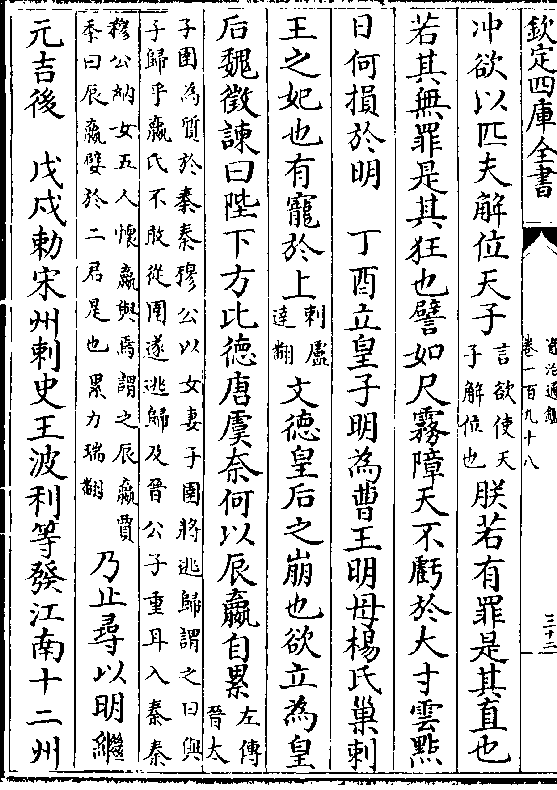 欽定四庫全書
資治通鑑
卷一百九十八
三十三
冲欲以匹夫解位天子言欲使天子解位也朕若有罪是其直也
若其無罪是其狂也譬如尺霧障天不虧於大寸雲點
日何損於明　丁酉立皇子明為曹王明母楊氏巢剌
王之妃也有寵於上剌盧達翻文德皇后之崩也欲立為皇
后魏徵諫曰陛下方比德唐虞奈何以辰嬴自累左傳晉大
子圉為質於秦秦穆公以女妻子圉將逃歸謂之曰與
子歸乎嬴氏不敢從圉遂逃歸及晉公子重耳入秦秦
穆公納女五人懷嬴與焉謂之辰嬴賈
季曰辰嬴嬖於二君是也累力瑞翻乃止尋以明繼
元吉後　戊戌勅宋州刺史王波利等發江南十二州